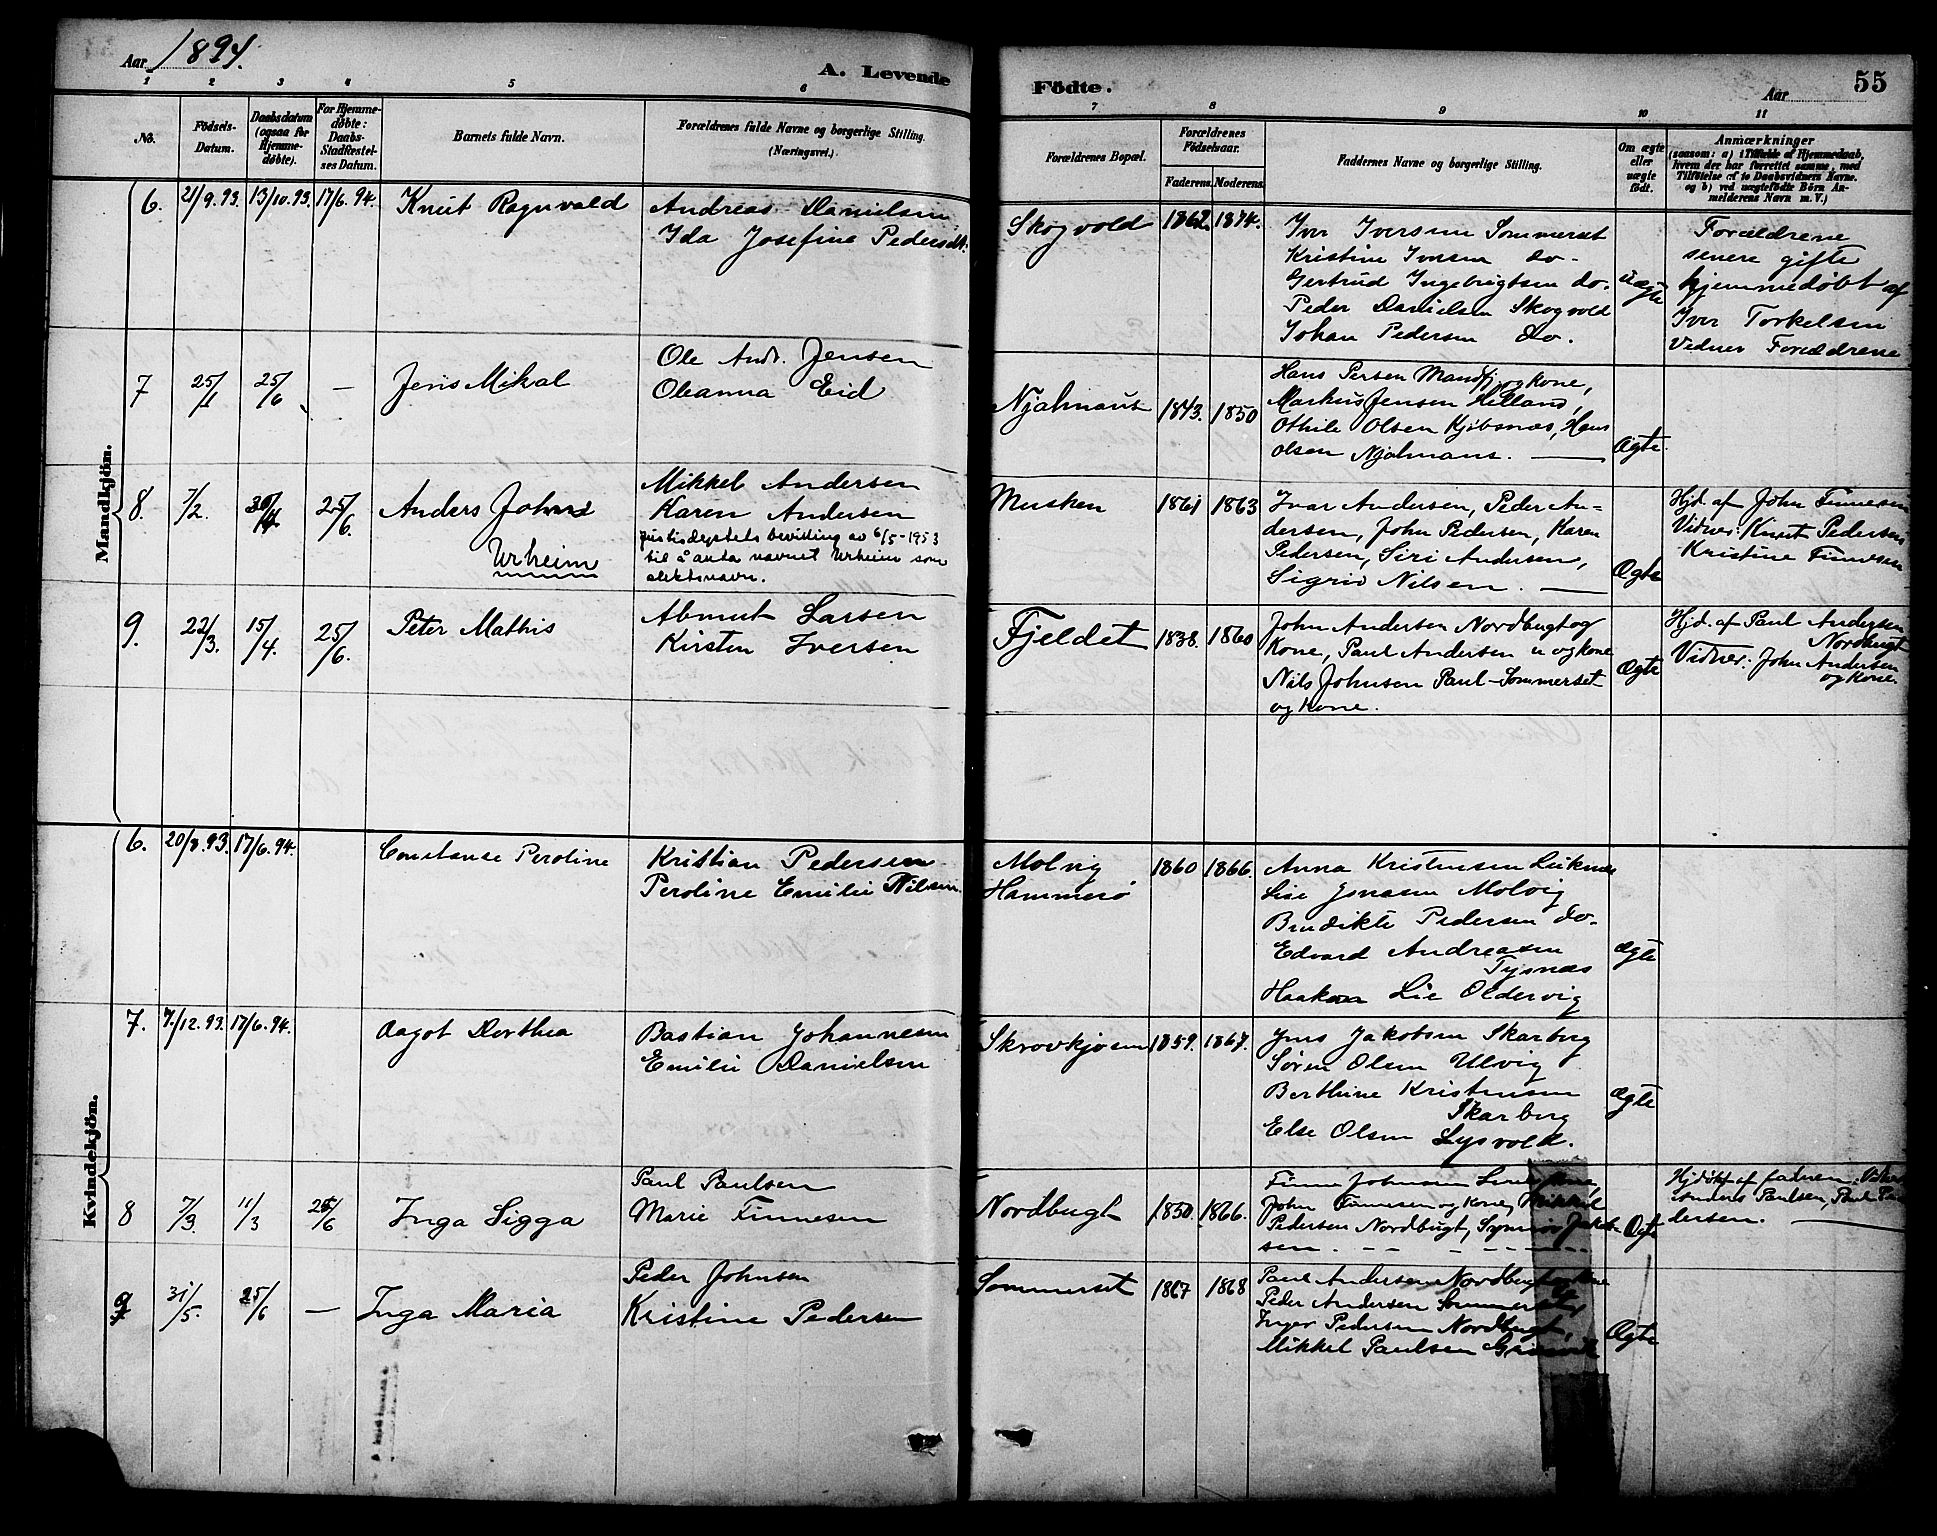 Aar 1894.
A. Levende
Fødte.
Aar
55
1 2 3 4 5 6 7 8 9 10 11
No.
Fødsels-
Datum.
Daabsdatum
(ogsaa for
Hjemme-
døbte).
For Hjemme-
døbte:
Daabs-
Stadfæstel-
ses Datum.
Barnets fulde Navn.
Forældrenes fulde Navne og borgerlige Stilling.
(Næringsvei.)
Forældrenes Bopæl.
Forældrenes
Fødselsaar.
Faderens. Moderens.
Faddernes Navne og borgerlige Stilling.
Om ægte
eller
uægte
født.
Anmærkninger
(saasom: a) i Tilfælde af Hjemmedaab,
hvem der har forrettet samme, med
Tilføielse af to Daabsvidners Navne.
og b) ved uægtefødte Børn An-
melderens Navn m. V.)
Mandkjøn.
6. 21/9.93. 13/10.93. 17/6.94. Knut Ragnvald
Andreas Danielsen
Ida Josefine Pedersdt.
Skogvold 1862. 1874.
Iver Iversen Sommerset
Kristine Iversen do.
Gertrud Ingebrigtsen do.
Peder Danielsen Skogvold
Johan Pedersen do.
uægte
Forældrene
senere gifte
hjemmedøbt af
Iver Torkelsen
Vidner Forældrene
7 25/1 25/6 — Jens Mikal
Ole Andr. Jensen
Oleanna Eid
Njalmans 1843. 1850
Hans Persen Mandfj. og kone,
Markus Jensen Helland,
Othile Olsen Kjøbsnæs, Hans
Olsen Njalmans. —
Ægte.
8. 7/2. 25/6. Anders Johns
Urheim
Mikkel Andersen
Karen Andersen
Justisdeptets bevilling av 6/5-1953
til å anta navnet Urheim som
slektsnavn.
Musken 1861 1863
Ivar Andersen, Peder An=
dersen, John Pedersen, Karen
Pedersen, Siri Andersen,
Sigrid Nilsen. —
Ægte
Hjd. af John Finnesen
Vidner: Knut Pedersen
Kristine Finnesen
9. 22/3. 15/4. 25/6. Peter Mathis
Abmut Larsen
Kirsten Iversen
Fjeldet 1838. 1860
John Andersen Nordbugt og
Kone, Paul Andersen og kone
Nils Johnsen Paul-Sommerset
og kone.
Ægte
Hjd. af Paul Andersen
Nordbugt
Vidner: John Andersen
og kone.
Kvindekjøn.
6. 20/8.93. 17/6.94. Constanse Peroline
Kristian Pedersen
Peroline Emilie Nilsen.
Molvig
Hammerø
1860 1866.
Anna Kristensen Leiknes
Lise Jonasen Molvig
Bendikte Pedersen do.
Edvard Andreasen
Tysnæs
Haakon Lie Oldervig
ægte
7. 7./12.93. 17/6.94. Aagot Dorthea
Bastian Johannesen
Emilie Danielsen
Skrovkjosen 1859. 1867.
Jens Jakobsen Skarberg
Søren Olsen Ulvig
Berthine Kristensen
Skarberg
Else Olsen Lysvold.
ægte
8 7/3 11/3 25/6 Inga Sigga
Paul Paulsen
Marie Finnesen
Nordbugt 1850. 1866.
Finn Johnsen
John Finnesen og Kone, Mikkel
Pedersen Nordbugt, Jakob-
sen.
Ægte
Hjdøbt af faderen. Vidner
Anders Paulsen, Paul Pe-
dersen. —
9 31/5. 25/6 — Inga Maria
Peder Johnsen
Kristine Pedersen
Sommerset 1867 1868
Paul Andersen Nordbugt og kone
Peder Andersen Sommerset,
Inger Pedersen Nordbugt,
Mikkel Paulsen
Ægte